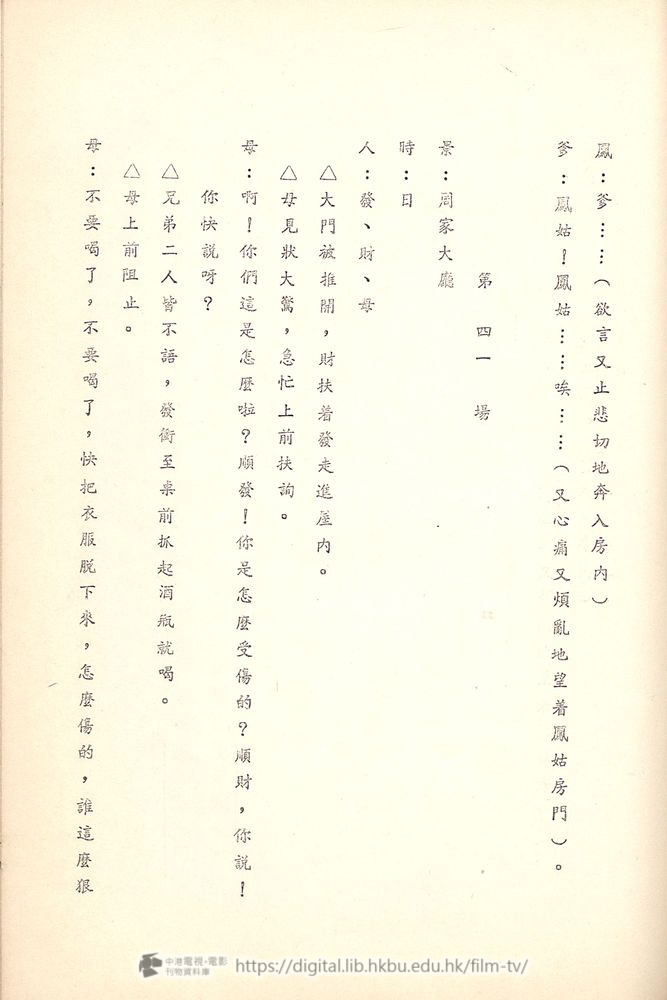 鳳：爹……（欲言又止悲切地奔入房內）
爹：鳳姑！鳳姑……唉……（又心痛又煩亂地望着鳳姑房門）。
第四一場
景：周家大廳
時：日
人：發、財、母
△大門被推開，財扶着發走進屋內。
△母見狀大驚，急忙上前扶詢。
母：啊！你們這是怎麼啦？順發！你是怎麼受傷的？順財，你說！
你快說呀？
△兄弟二人皆不語，發衝至桌前抓起酒瓶就喝。
△母上前阻止。
母：不要喝了，不要喝了，快把衣服脫下來，怎麼傷的，誰這麼狠
中港電視·電影
刊物資料庫
https://digital.lib.hkbu.edu.hk/film-tv/